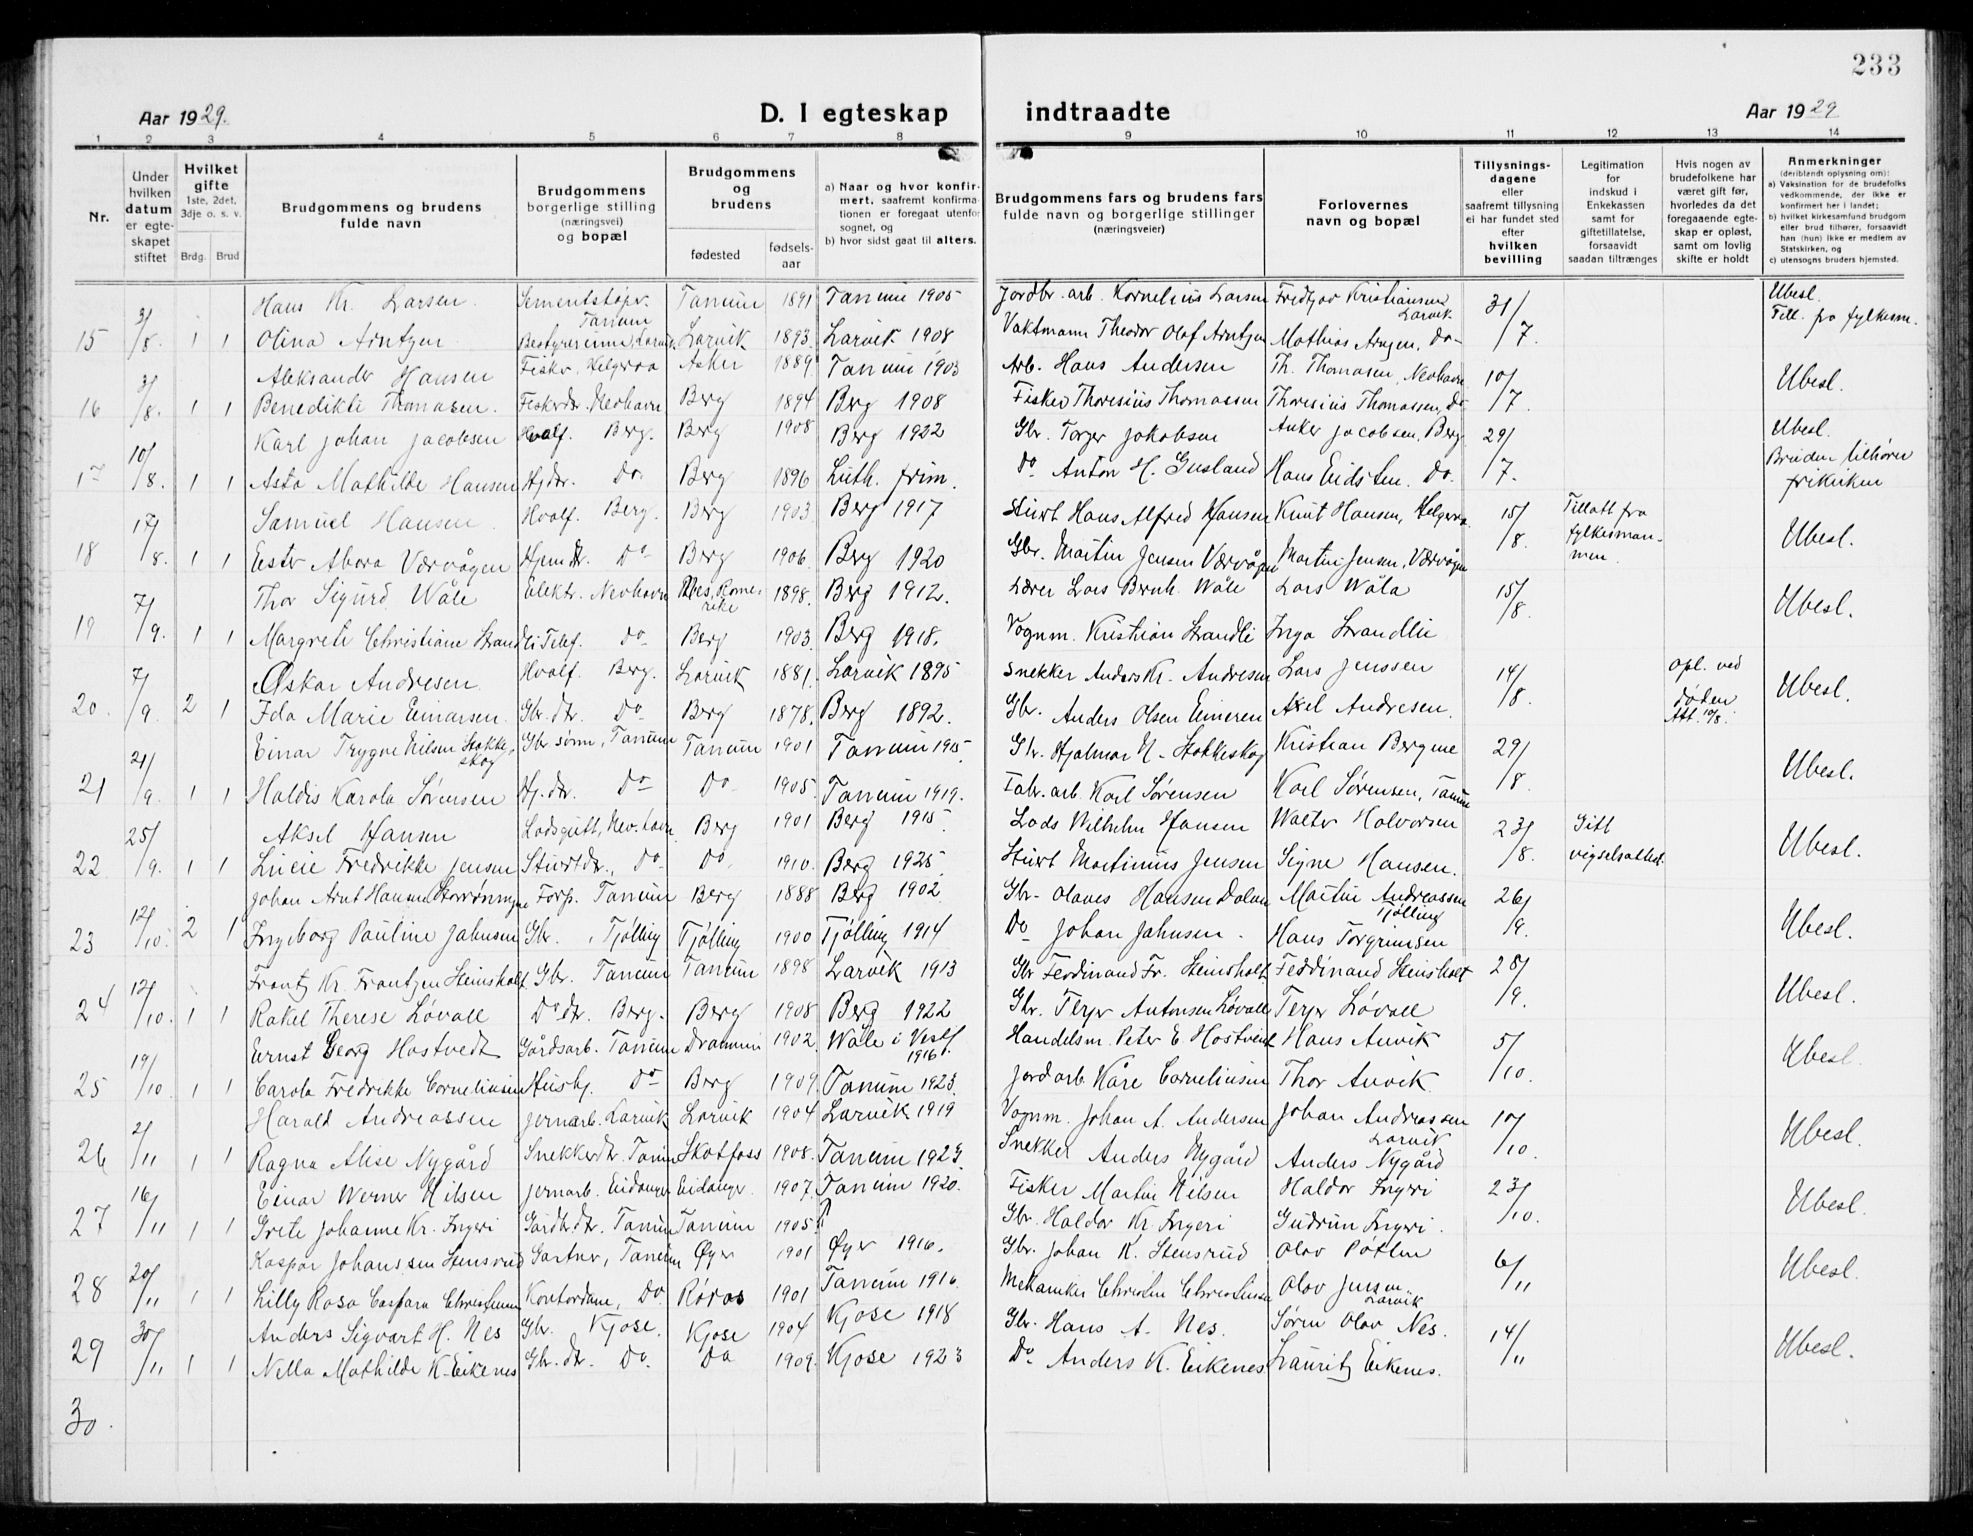 233
Aar 1929.
D. I egteskap
indtraadte
Aar 1929
1 2 3 4 5 6 7 8 9 10 11 12 13 14
Nr.
Under hvilken datum er egteskapet stiftet
Hvilket gifte 1ste, 2det, 3dje o. s. v.
Brdg. Brud
Brudgommens og brudens fulde navn
Brudgommens borgerlige stilling (næringsvei) og bopæl
Brudgommens og brudens
fødested fødsels-aar
a) Naar og hvor konfirmert, saafremt konfirmationen er foregaaet utenfor sognet, og
b) hvor sidst gaat til alters.
Brudgommens fars og brudens fars fulde navn og borgerlige stillinger (næringsveier)
Forlovernes navn og bopæl
Tillysningsdagene eller saafremt tillysning ei har fundet sted efter hvilken bevilling
Legitimation for indskud i Enkekassen samt for giftetillatelse, forsaavidt saadan tiltrænges
Hvis nogen av brudefolkene har været gift før, hvorledes da det foregaaende egteskap er opløst, samt om lovlig skifte er holdt
Anmerkninger (deriblandt oplysning om):
a) Vaksination for de brudefolks vedkommende, der ikke er konfirmert her i landet;
b) hvilket kirkesamfund brudgom eller brud tilhører, forsaavidt han (hun) ikke er medlem av Statskirken, og
c) utensogns bruders hjemsted.
Hans Kr. Larsen. Sementstøper Tanum Tanum 1891 Tanum 1905 Jordbr. arb. Kornelius Larsen Fredtjov Kristiansen Larvik 31/7 Ubesl. Till. fra fylkesm.
15 3/8. 1 1 Olina Arntzen Bestyrerinne, Larvik Larvik 1893. Larvik 1908 Vaktmann Theodor Olaf Arntzen Mathias Do
Aleksander Hansen Fisker Helgeroa Asker 1889 Tanum 1903 Arb. Hans Andersen Th. Thomasen, Nevlhavn 10/7 Ubesl.
16 3/8. 1 1 Benedikte Thomasen. Fiskerdtr. Nevlhavn Berg 1894 Berg 1908 Fisker Thoresius Thomassen Thoresius Thomassen, Do
Karl Johan Jacobsen Hvalf. Berg. Berg 1908 Berg 1922 Gbr. Torger Jakobsen Anker Jacobsen, Berg 29/7. Ubesl. Bruden tilhører frikirken
17 10/8. 1 1 Asta Mathilde Hansen Hj.dtr. Do. Berg 1896 Luth. frim. Do Anton H. Gusland Hans Eidsten. Do.
Samuel Hansen. Hvalf. Berg. Berg 1903 Berg 1917 Stuert Hans Alfred Hansen Knut Hansen, Helgeroa 15/8 Tillatt fra fylkesmannen. Ubesl.
18 17/8. 1 1 Ester Abora Værvågen Hjem.dtr. Do Berg 1906. Berg 1920 Gbr. Martin Jensen Værvågen Martin Jensen, Værvågen
Thor Sigurd Wåle Elektr. Nevlhavn Nes, Romerike 1898. Berg 1912. Lærer Lars Bernh. Wåle Lars Wåla 15/8. Ubesl.
19 7/9. 1 1 Margrete Christiane Strandli Telef. Do Berg 1903. Berg 1918. Vognm. Kristian Strandli Inga Strandlie
Oskar Andresen Hvalf. Berg. Larvik 1881. Larvik 1895 Snekker Anders Kr. Andresen Lars Jenssen 14/8. opl. ved døden Att. 10/8. Ubesl.
20. 7/9. 2 1 Ida Marie Einarsen. Gbr. dtr. Do Berg 1878. Berg 1892. Gbr. Anders Olsen Eineren Axel Andresen.
Einar Trygve Nilsen Stokkeskog Gbr sønn, Tanum Tanum 1901 Tanum 1915. Gbr. Hjalmar N. Stokkeskog Kristian Bergene 29/8. Ubesl.
21 21/9. 1 1 Haldis Karola Sørensen Hj.dtr. Do Do 1905. Tanum 1919. Fabr. arb. Karl Sørensen Karl Sørensen, Tanum
Aksel Hansen Losgutt, Nevlhavn Berg 1901 Berg 1915 Lods Wilhelm Hansen Walter Halvorsen 23/8. Sitt vigselsattest. Ubesl.
22 25/9. 1 1 Lucie Fredrikke Jensen Stuertdtr., Do. Do 1910. Berg 1925. Stuert Martinius Jensen Signe Hansen.
Johan Arnt Hansen Forp. Tanum Berg 1888 Berg 1902 Gbr. Olaves Hansen Dalen Martin Andreassen Tjølling 26/9. Ubesl.
23 12/10. 2 1 Ingeborg Pauline Jahnsen Gbr. , Tjølling Tjølling 1900 Tjølling 1914 Do Johan Jahnsen. Hans Torgrimsen
Frantz Kr. Frantzen Steinsholt Gbr. Tanum Tanum 1898 Larvik 1913 Gbr Ferdinand Fr. Steinsholt Ferdinand Steinsholt 28/9. Ubesl.
24 12/10. 1 1 Rakel Therese Løvall Do dtr. Berg. Berg 1908 Berg 1922 Gbr. Terjer Antonsen Løvall Terjer Løvall
Ernst Georg Hostvedt Gårdsarb. Tanum Drammen 1902. Wåle i Vestf. 1916. Handelsm. Peter E Hostvedt Hans Auvik 5/10. Ubesl.
25 19/10. 1 1 Carola Fredrikke Corneliusen Husbg. Do Berg 1909. Tanum 1923. Jordarb Kåre Corneliusen Thor Auvik.
Harald Andreassen Jernarb. Larvik Larvik 1904 Larvik 1919 Vognm. Johan A. Andersen Johan Andreassen Larvik 10/10. Ubesl.
26 2/11 1 1 Ragna Alise Nygård Snekkerdtr. Tanum Skotfoss 1908. Tanum 1923. Snekker Anders Nygård Anders Nygård
Einar Werner Nilsen Jernarb. Eidanger Eidanger. 1907. Tanum 1920. Fisker Martin Nilsen Haldor Ingeri 23/10. Ubesl.
27 16/11 1 1 Grete Johanne Kr. Ingeri Gårdb.dtr. Tanum Tanum 1905. Gbr. Haldor Kr. Ingeri Gudrun Ingeri.
Kaspar Johanssen Stensrud Gartner, Tanum Øyer 1901 Øyer 1916. Gbr. Johan K. Stensrud Olav 6/11 Ubesl.
28 20/11 1 1 Lilly Rosa Caspara Christensen Kontordame, Do Røros 1901 Tanum 1916 Mekaniker Christen Christensen Olav Jensen Larvik
Anders Sigvart H. Nes Gbr. Kjose. Kjose 1904 Kjose 1918 Gbr. Hans A. Nes. Søren Olav Nes. 14/11 Ubesl.
29 30/11 1 1 Nella Mathilde K. Eikenes Gbr. dtr. Do. Do 1909. Kjose 1923 Do Anders K. Eikenes Lauritz Eikenes.
30.